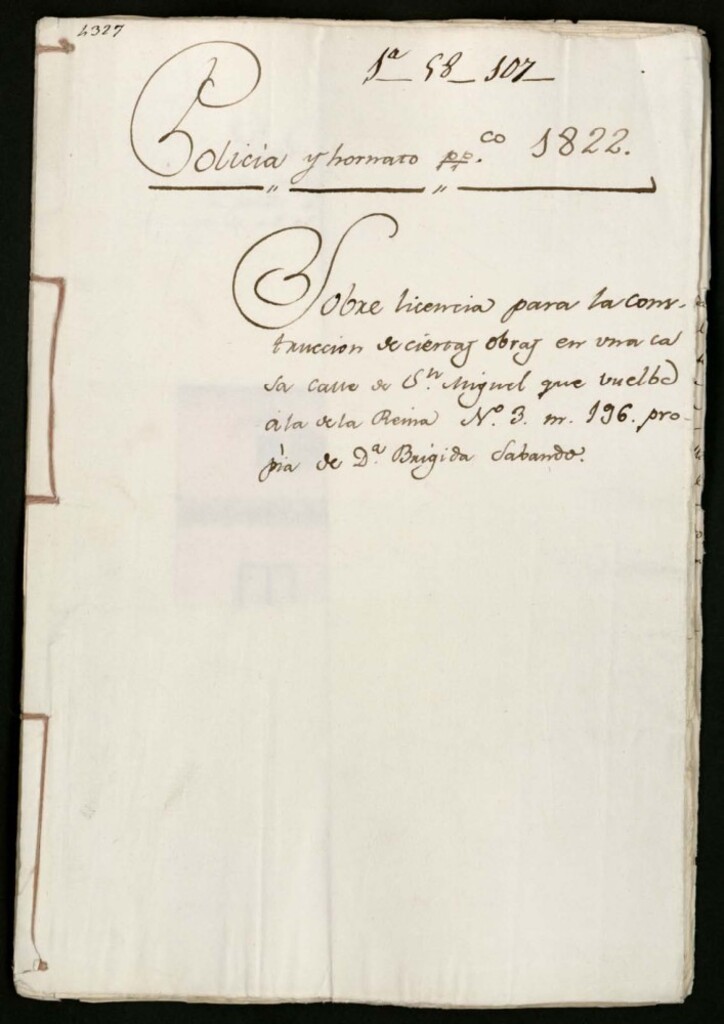 4327
1ª 58 107
Policia y hornato pp.co 1822.
Sobre licencia para la cons-
truccion de ciertas obras en una ca
sa calle de Sn Miguel que vuelbe
á la de la Reina Nº. 3. m. 196. pro-
pia de Dª. Brigida Sabando.